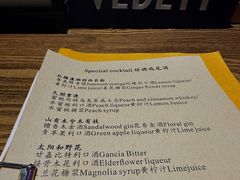 VEDETT
Speciial cocktail 特调鸡尾酒
Jameson orange柠檬利口酒Lemon liqueur/
黄柠汁/生姜花糖浆Ginger flower syrup
久别重逢
水蜜桃Peach and cinnamon whiskey/
水蜜桃利口酒/黄柠汁Lemon Juice
水蜜桃糖浆Peach syrup
山有木兮木有枝
檀香木金酒Sandalwood gin花香金酒Floral gin
青苹果利口酒Green apple liqueur/青柠汁Lime juice
太阳和野花
甘嘉比特利口酒Gancia Bitter
接骨木花利口酒Elderflower liqueur
兰花糖浆Magnolia syrup青柠汁Limejuice